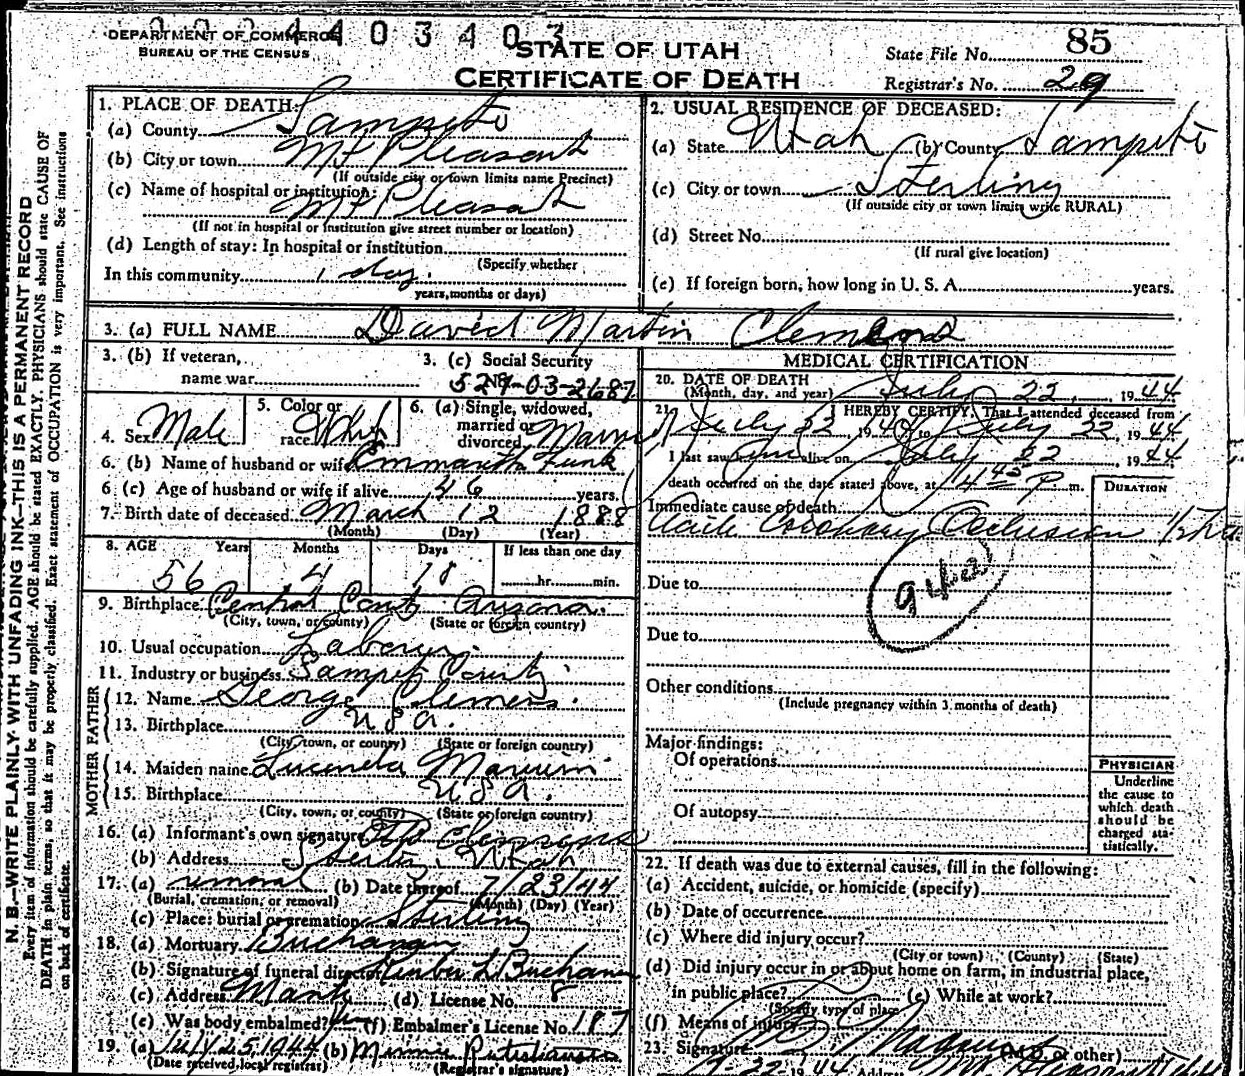 0024403403
DEPARTMENT OF COMMERCE
BUREAU OF THE CENSUS
STATE OF UTAH
CERTIFICATE OF DEATH
State File No. 85
Registrar's No. 29
N. B.—WRITE PLAINLY WITH UNFADING INK—THIS IS A PERMANENT RECORD
Every item of information should be carefully supplied. AGE should be stated EXACTLY. PHYSICIANS should state CAUSE OF
DEATH in plain terms, so that it may be properly classified. Exact statement of OCCUPATION is very important. See instructions
on back of certificate.
1. PLACE OF DEATH:
(a) County Sanpete
(b) City or town Mt Pleasant
(If outside city or town limits name Precinct)
(c) Name of hospital or institution:
Mt Pleasant
(If not in hospital or institution give street number or location)
(d) Length of stay: In hospital or institution
(Specify whether
In this community 1 day.
years, months or days)
2. USUAL RESIDENCE OF DECEASED:
(a) State Utah (b) County Sanpete
(c) City or town Sterling
(If outside city or town limits write RURAL)
(d) Street No.
(If rural give location)
(e) If foreign born, how long in U. S. A. years.
3. (a) FULL NAME David Martin Clemens
3. (b) If veteran,
name war
3. (c) Social Security
No. 529-03-2687
4. Sex Male
5. Color or
race White
6. (a) Single, widowed,
married or
divorced Married
6. (b) Name of husband or wife Funk
6 (c) Age of husband or wife if alive 46 years.
7. Birth date of deceased March 12 1888
(Month) (Day) (Year)
8. AGE Years Months Days If less than one day
56 4 10 hr. min.
9. Birthplace Central County Arizona.
(City, town, or county) (State or foreign country)
10. Usual occupation Laborer.
11. Industry or business Sanpete County
FATHER
12. Name George Clemens.
13. Birthplace USA.
(City, town, or county) (State or foreign country)
MOTHER
14. Maiden name Lucinda
15. Birthplace USA.
(City, town, or county) (State or foreign country)
16. (a) Informant's own signature Clemens
(b) Address Sterling, Utah
17. (a) removal (b) Date thereof 7/23/44
(Burial, cremation, or removal) (Month) (Day) (Year)
(c) Place: burial or cremation Sterling
18. (a) Mortuary Buchanan
(b) Signature of funeral director Buchanan
(c) Address Manti (d) License No. 8
(e) Was body embalmed? yes (f) Embalmer's License No. 187
19. (a) July 25, 1944 (b) Minnie
(Date received, local registrar) (Registrar's signature)
MEDICAL CERTIFICATION
20. DATE OF DEATH
(Month, day, and year) July 22, 1944
21. I HEREBY CERTIFY, That I attended deceased from
July 22, 1944, to July 22, 1944
I last saw him alive on July 22 1944
death occurred on the date stated above, at 4 45 P m.
DURATION
Immediate cause of death
Acute Coronary Occlusion 1/2 hr
94a
Due to
Due to
Other conditions
(Include pregnancy within 3 months of death)
Major findings:
Of operations
Of autopsy
PHYSICIAN
Underline
the cause to
which death
should be
charged sta-
tistically.
22. If death was due to external causes, fill in the following:
(a) Accident, suicide, or homicide (specify)
(b) Date of occurrence
(c) Where did injury occur?
(City or town) (County) (State)
(d) Did injury occur in or about home on farm, in industrial place,
in public place? (e) While at work?
(Specify type of place)
(f) Means of injury
23. Signature (M.D. or other)
7-22-1944 Address Mt Pleasant Utah